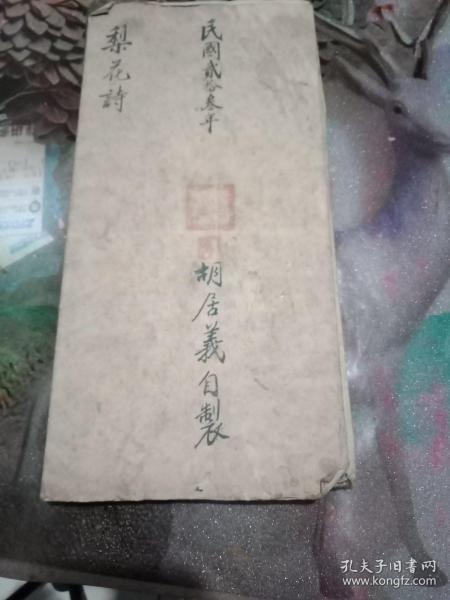 民國貳拾叁年
梨花詩
胡居義自製
孔夫子旧书网
www.kongfz.com